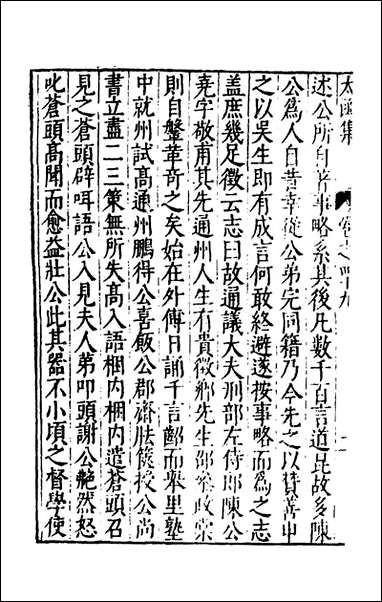 太函集
卷之四十九
述公所自著事略系其後凡數千百言道毘故多陳
公為人自昔幸從公弟完同籍乃今先之以贊善申
之以吳生即有成言何敢終避遂按事略而為之志
蓋庶幾足徵云志曰故通議大夫刑部左侍郎陳公
堯字敬甫其先通州人生有貴徵鄉先生邵參政棠
則自鬌革奇之矣始在外傅日誦千言鄙而舉里塾
中就州試高通州鵬得公喜飯公郡齋胠篋授公尚
書立盡二三策無所失高入語梱內梱內遣蒼頭召
見之蒼頭辟咡語公入見夫人弟叩頭謝公艴然怒
叱蒼頭高聞而愈益壯公此其器不小頃之督學使